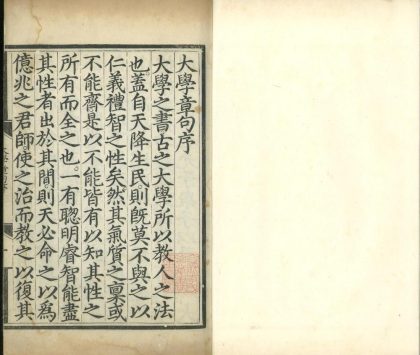 大學章句序
大學之書古之大學所以教人之法
也蓋自天降生民則旣莫不與之以
仁義禮智之性矣然其氣質之稟或
不能齊是以不能皆有以知其性之
所有而全之也一有聰明睿智能盡
其性者出於其間則天必命之以爲
億兆之君師使之治而教之以復其